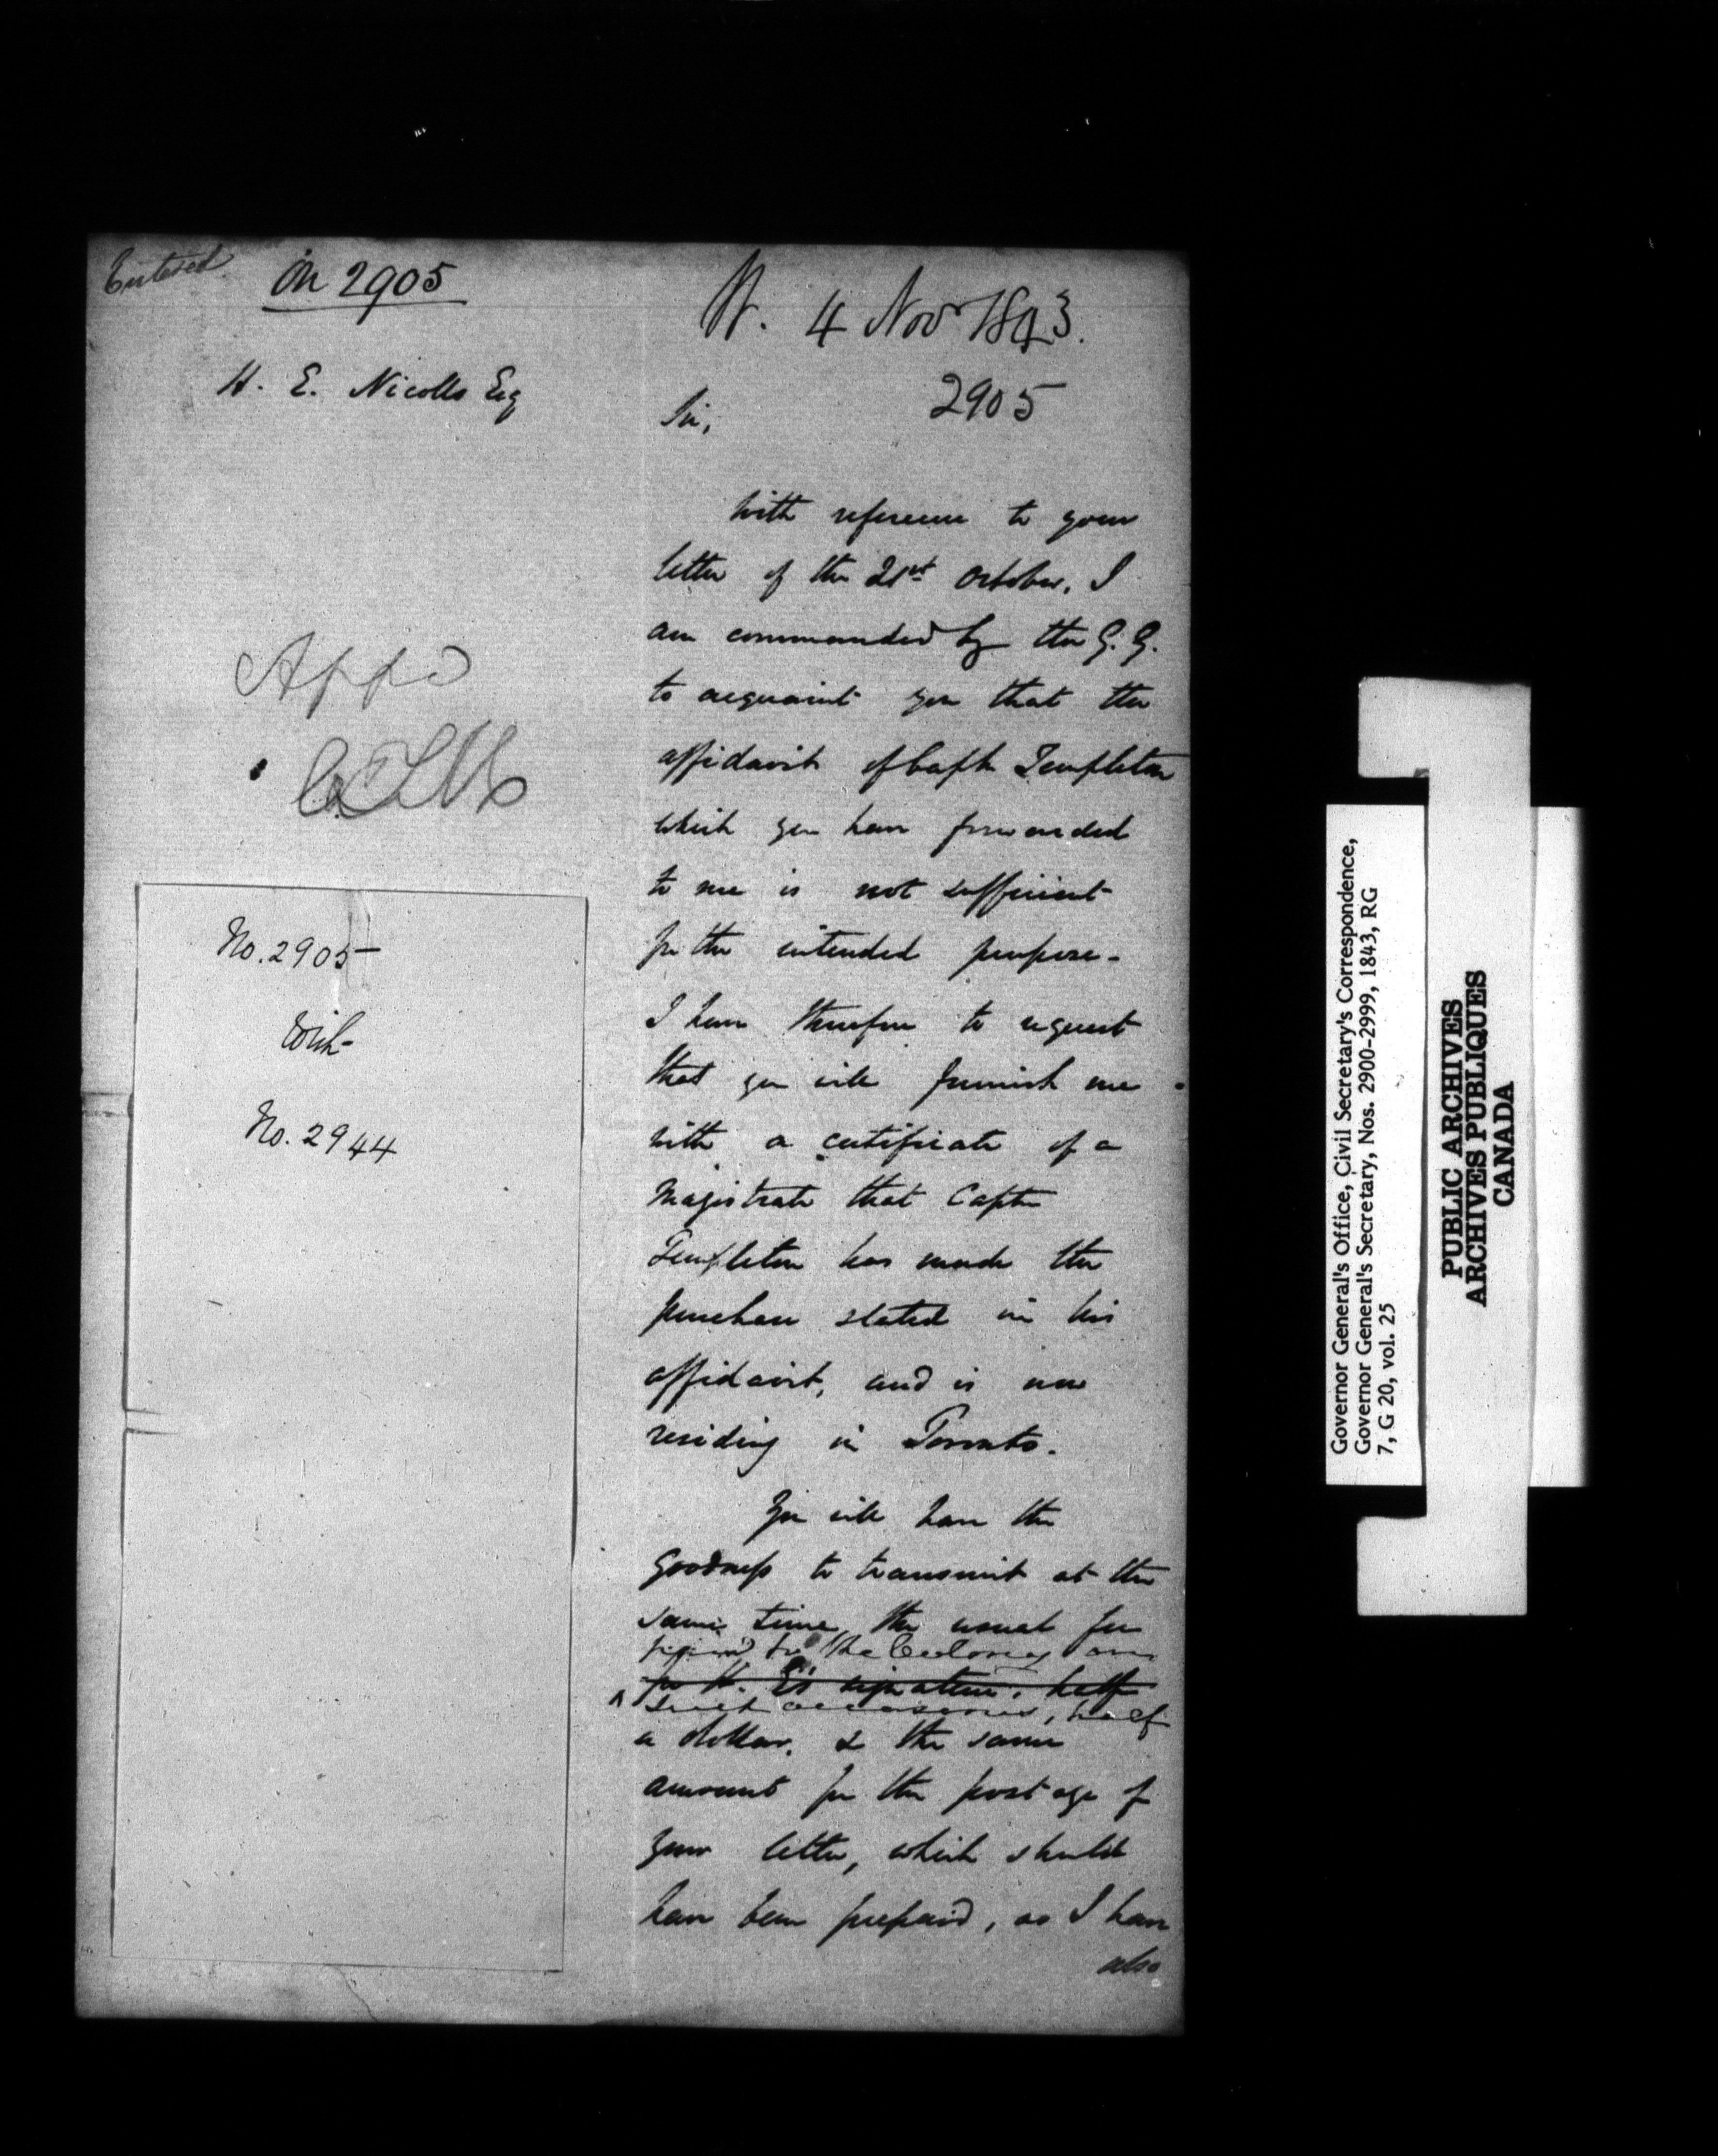 Entered
On 2905
H. E. Nicolls Esq
Appd
No. 2905
With
No. 2944
K. 4 Nov 1843.
2905
Sir,
With reference to your
letter of the 21st October, I
am commanded by the G. G.
to acquaint you that the
affidavit of Captn Templeton
which you have forwarded
to me is not sufficient
for the intended purpose.
I have therefore to request
that you will furnish me
with a certificate of a
Magistrate that Captn
Templeton has made the
purchase stated in his
affidavit, and is now
residing in Toronto.
You will have the
goodness to transmit at the
same time, the usual fee
paid in the Colony on
for H. E's signature, half
such occasions, half
a dollar, & the same
amount for the postage of
your letter, which should
have been prepaid, as I have
also
Governor General's Office, Civil Secretary's Correspondence,
Governor General's Secretary, Nos. 2900-2999, 1843, RG
7, G 20, vol. 25
PUBLIC ARCHIVES
ARCHIVES PUBLIQUES
CANADA